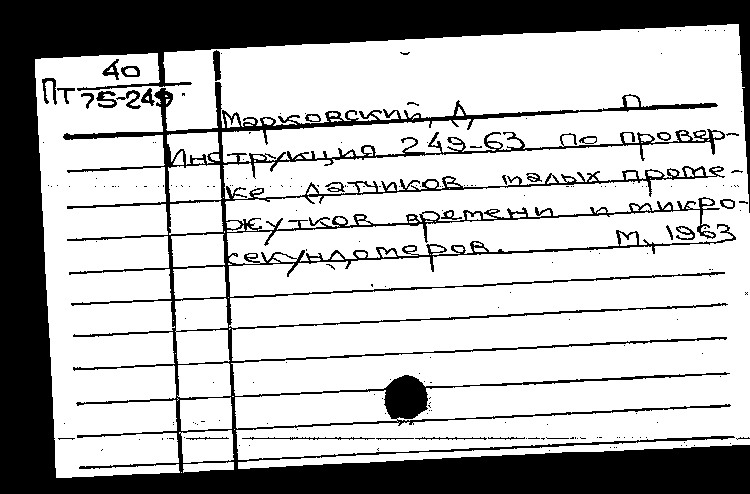 40
Пт 75-249
Марковский, Д, П
Инструкция 249-63 по провер-
ке датчиков малых проме-
жутков времени и микро-
секундомеров. М., 1963